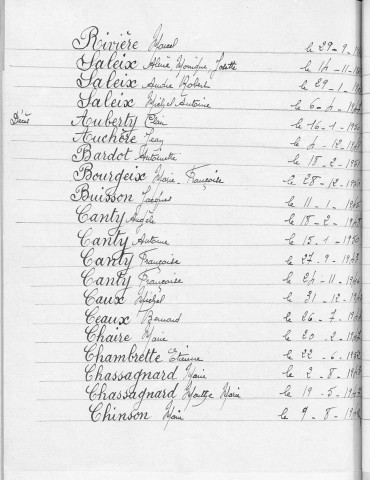 Rivière Marcel le 29-9-19
Saleix Aline, Monique, Josette le 14-11-19
Saleix André Robert le 29-1-19
Saleix Michel Antoine le 6-4-19
Auberty le 16-1-1950
Auchère Jean le 4-12-19
Bardot Antoinette le 18-2-1951
Bourgeix Marie-Françoise le 28-12-19
Buisson Jacques le 11-1-19
Canty Angèle le 18-2-19
Canty Antoine le 15-1-1950
Canty Françoise le 27-9-19
Canty Françoise le 24-11-19
Caux Michel le 31-12-19
Ceaux Bernard le 26-7-19
Chaire Marie le 20-2-19
Chambrette Etienne le 22-6-19
Chassagnard Marie le 2-8-19
Chassagnard Marie le 19-5-19
Chinson Marie le 9-8-19